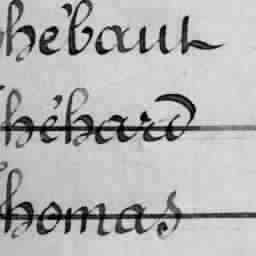 hébaut
hébard
homas